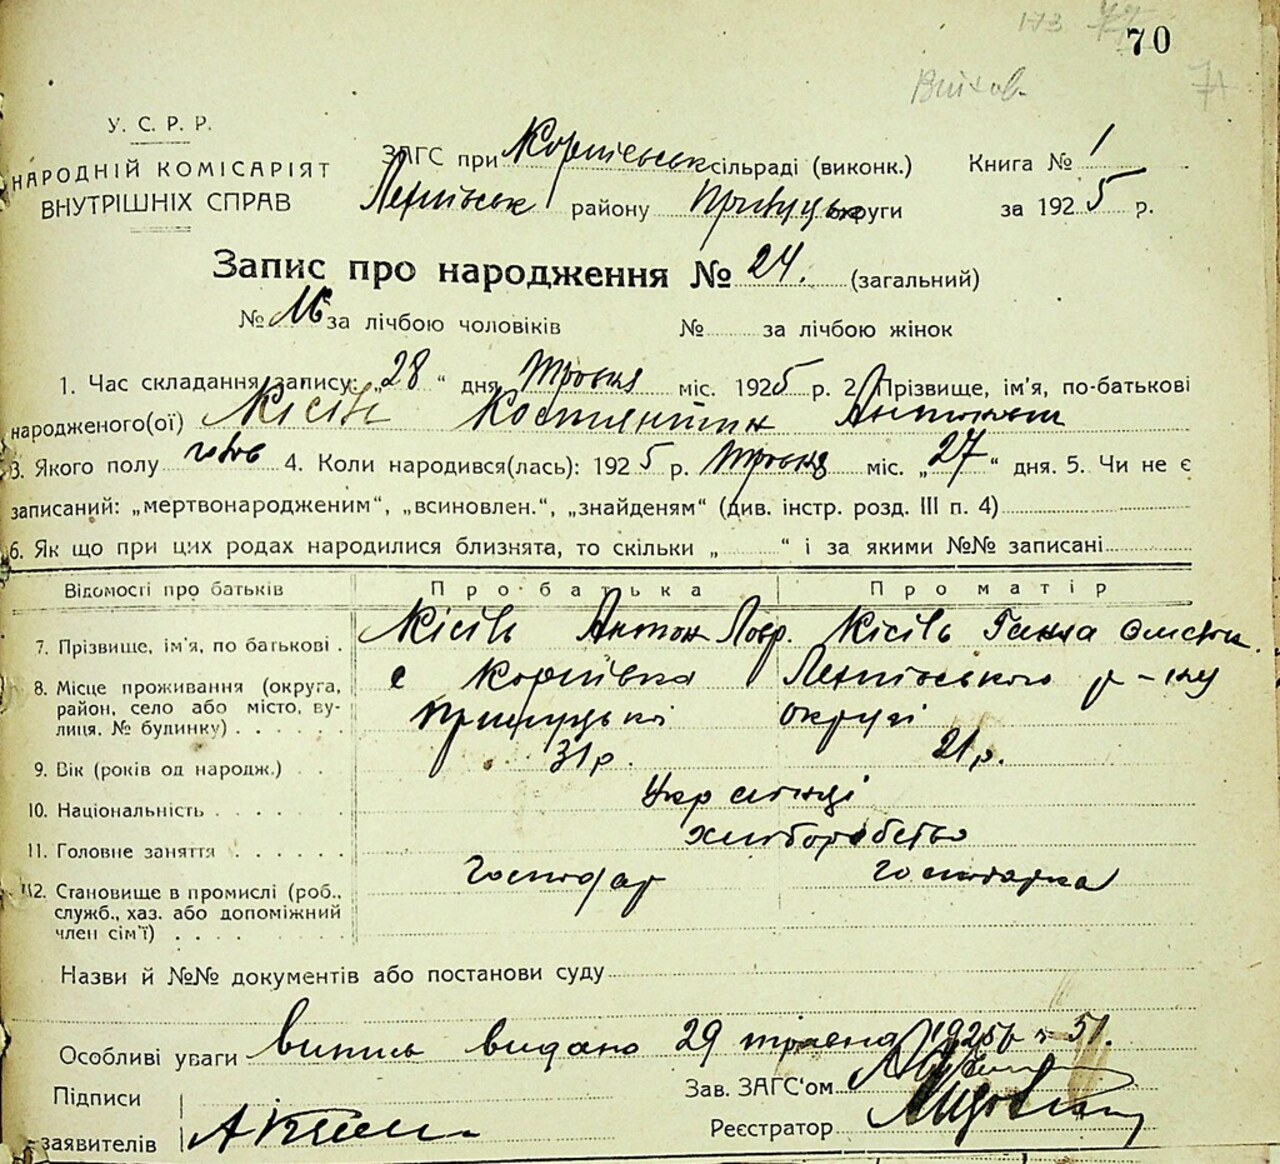 173 70
У. С. Р. Р.
НАРОДНІЙ КОМІСАРІЯТ
ВНУТРІШНІХ СПРАВ
ЗАГС при Корніївськ сільраді (виконк.) Книга № 1
району Прилуцьк округи за 1925 р.
Запис про народження № 24. (загальний)
№ 16 за лічбою чоловіків № за лічбою жінок
1. Час складання запису: „28“ дня Травня міс. 1925 р. 2. Прізвище, ім'я, по-батькові
народженого(ої) Кісіль Костянтин Антонов
3. Якого полу 4. Коли народився(лась): 1925 р. Травня міс. „27“ дня. 5. Чи не є
записаний: „мертвонародженим“, „всиновлен.“, „знайденям“ (див. інстр. розд. III п. 4)
6. Як що при цих родах народилися близнята, то скільки „ “ і за якими №№ записані
Відомості про батьків Про батька Про матір
7. Прізвище, ім'я, по батькові . Кісіль Антон Лавр. Кісіль Ганна
8. Місце проживання (округа, с Корніївка р-ну
район, село або місто, ву-
лиця, № будинку) . . . . . . Прилуцької округі
9. Вік (років од народж.) . . 31 р. 21 р.
10. Національність . . . . . . Українці
11. Головне заняття . . . . . . хліборобство
12. Становище в промислі (роб., Господар Господарка
служб., хаз. або допоміжний
член сім'ї) . . . .
Назви й №№ документів або постанови суду
Особливі уваги випись видано 29 травня 1925 р № 51.
Підписи Зав. ЗАГС'ом
заявителів Реєстратор